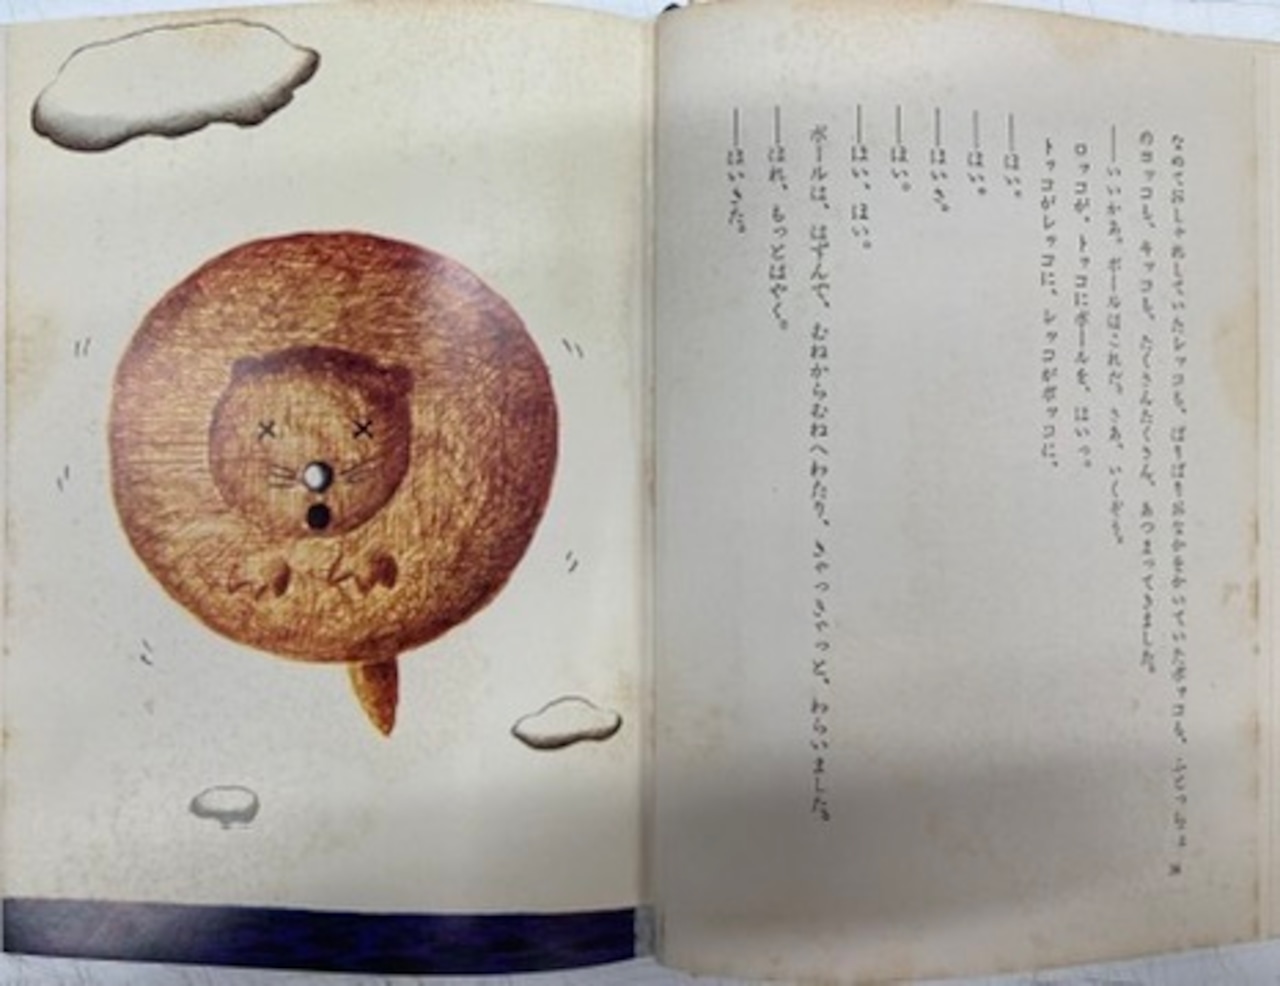 なのでおしゃれしていたレッコも、ぽりぽりおなかをかいていたポッコも、ふとっちょ
のコッコも、キッコも、たくさんたくさん、あつまってきました。
――いいかあ。ボールはこれだ。さあ、いくぞも。
ロッコが、トッコにボールを、はいっ。
トッコがレッコに、レッコがポッコに、
――はい。
――はい。
――はいさ。
――ほい。
――はい、ほい。
ボールは、はずんで、むねからむねへわたり、きゃっきゃっと、わらいました。
――ほれ、もっとはやく。
――はいきた。